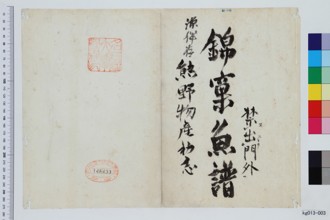 禁出門外
錦窠魚譜
源伴存熊野物産初志
kg013-003